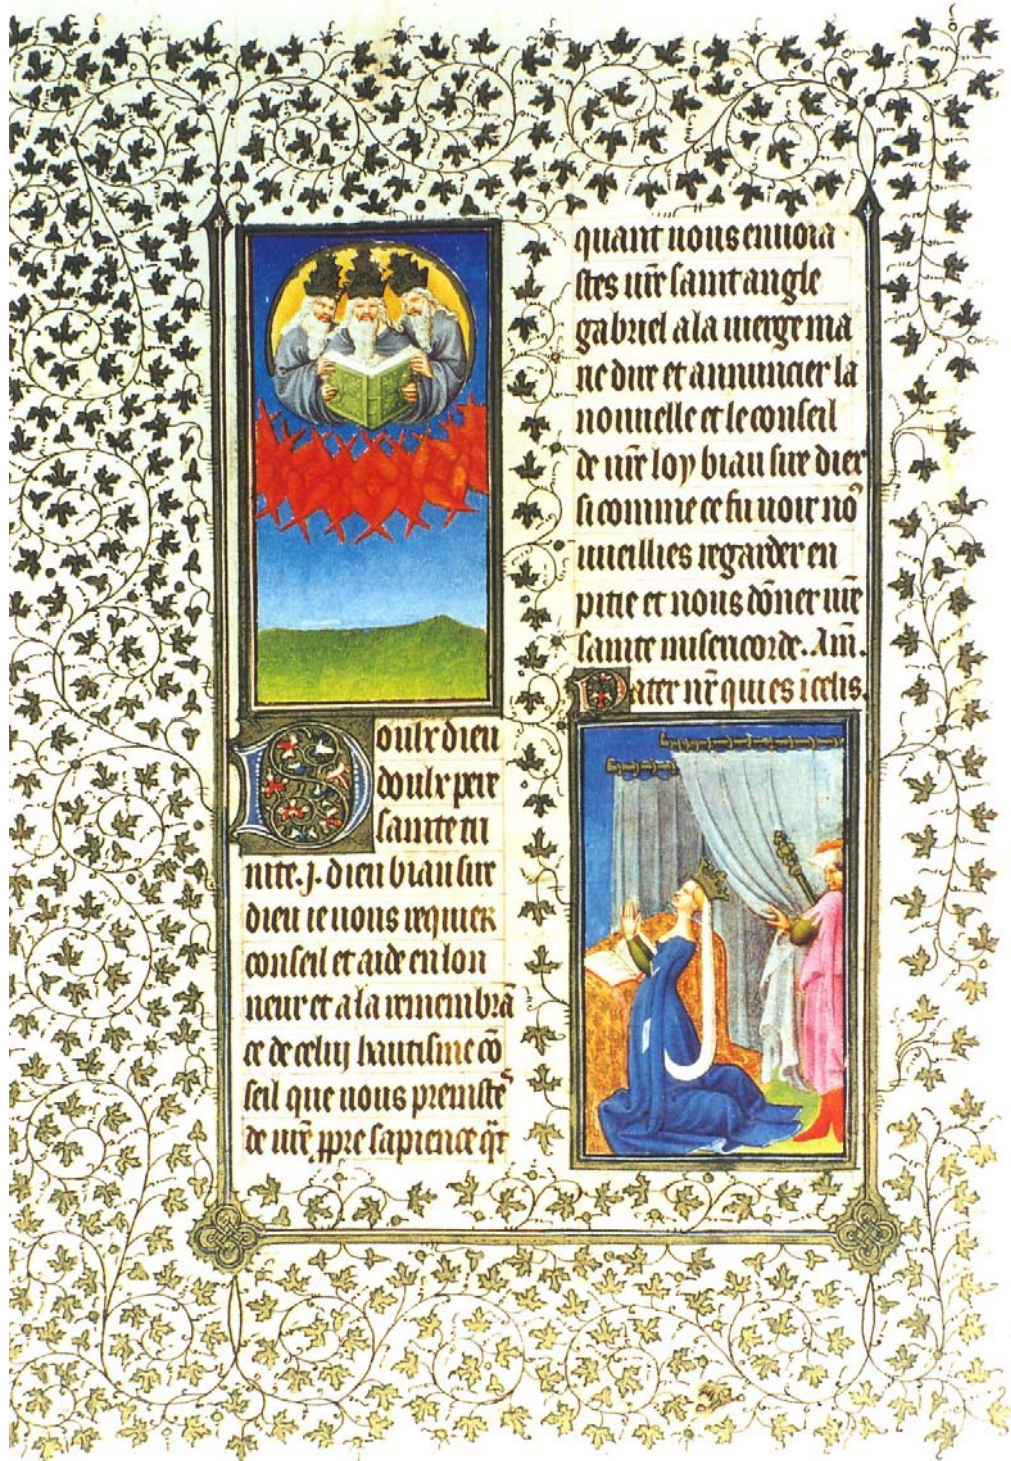 Doulx dieu
doulx pere
sainte tri
nite .j. dieu biau sire
dieu ie vous requier
conseil et aide en lon
neur et a la remembrā
ce de celuy hautisme cō
seil que vous preniste
de vr̄e ppre sapience qr
quant vous envoia
stes vr̄e saint angle
gabriel a la vierge ma
rie dire et annuncier la
nouuelle et le conseil
de vr̄e loy biau sire dier
si comme ce fu voir nō
vueillies regarder en
pitie et nous dōner vr̄e
sainte misericorde. Am̄.
Pater nr̄ qui es ī celis.